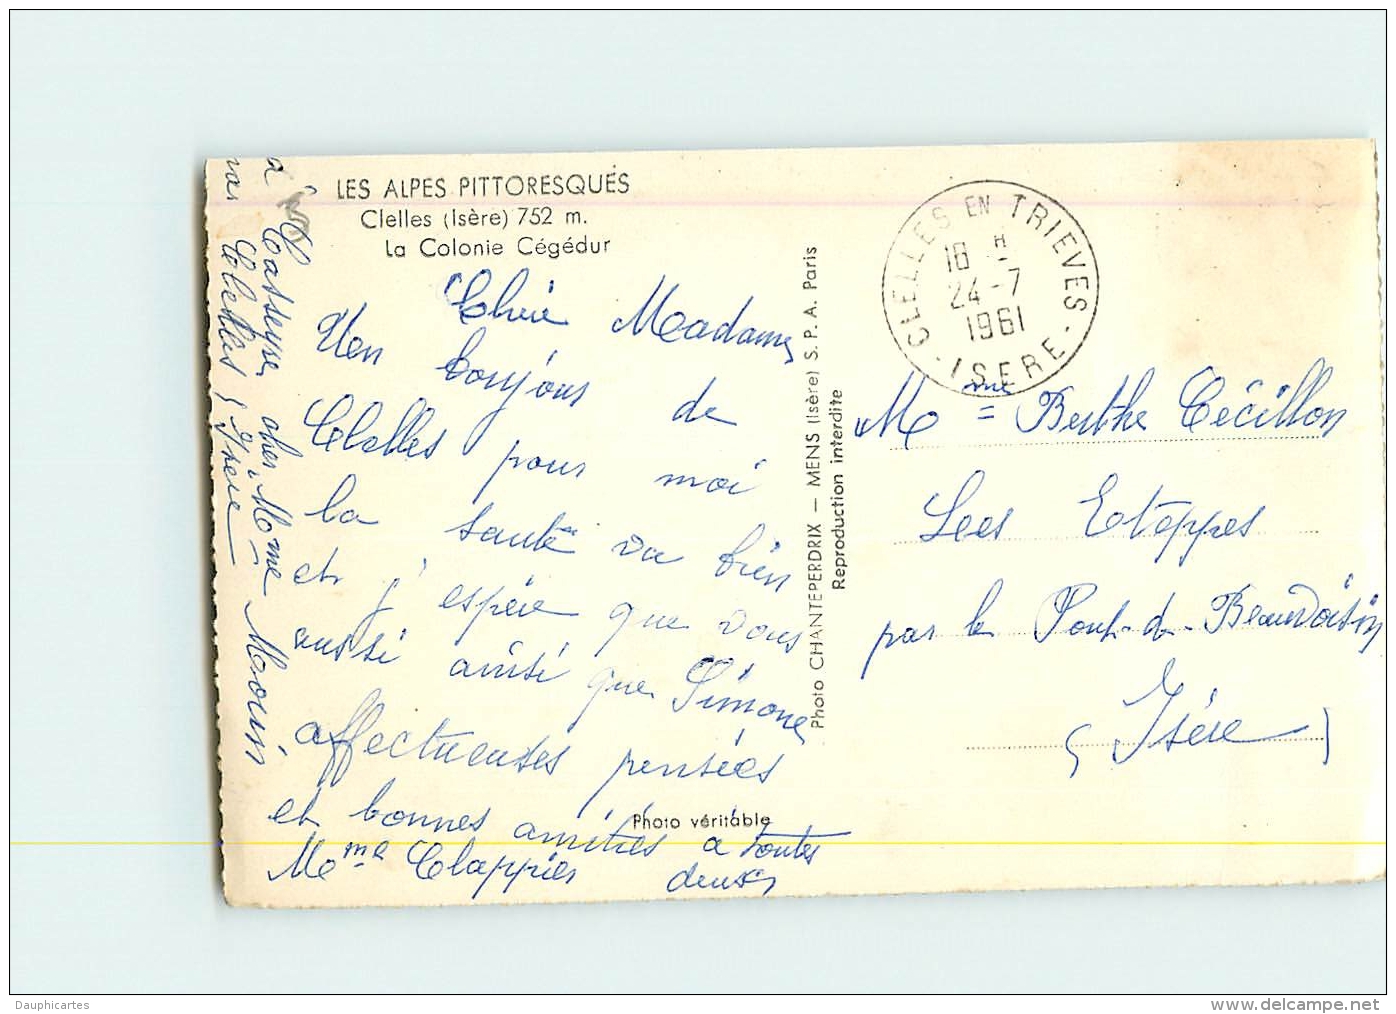 LES ALPES PITTORESQUES
Clelles (Isère) 752 m.
La Colonie Cégédur
Chère Madame
Un bonjour de
Clelles pour moi
la santé va bien
et j'espère que vous
aussi ainsi que Simone
affectueuses pensées
et bonnes amitiés a toutes
deux
Mme Clappier
Photo véritable
a Casseyre cher Mme Morin
Clelles (Isère
Photo CHANTEPERDRIX — MENS (Isère) S. P. A. Paris
Reproduction interdite
CLELLES EN TRIEVES
18 H
24-7
1961
- ISERE -
Mme Berthe Cécillon
Les Etappes
par le Pont-de-Beauvoisin
(Isère)
Dauphicartes
www.delcampe.net